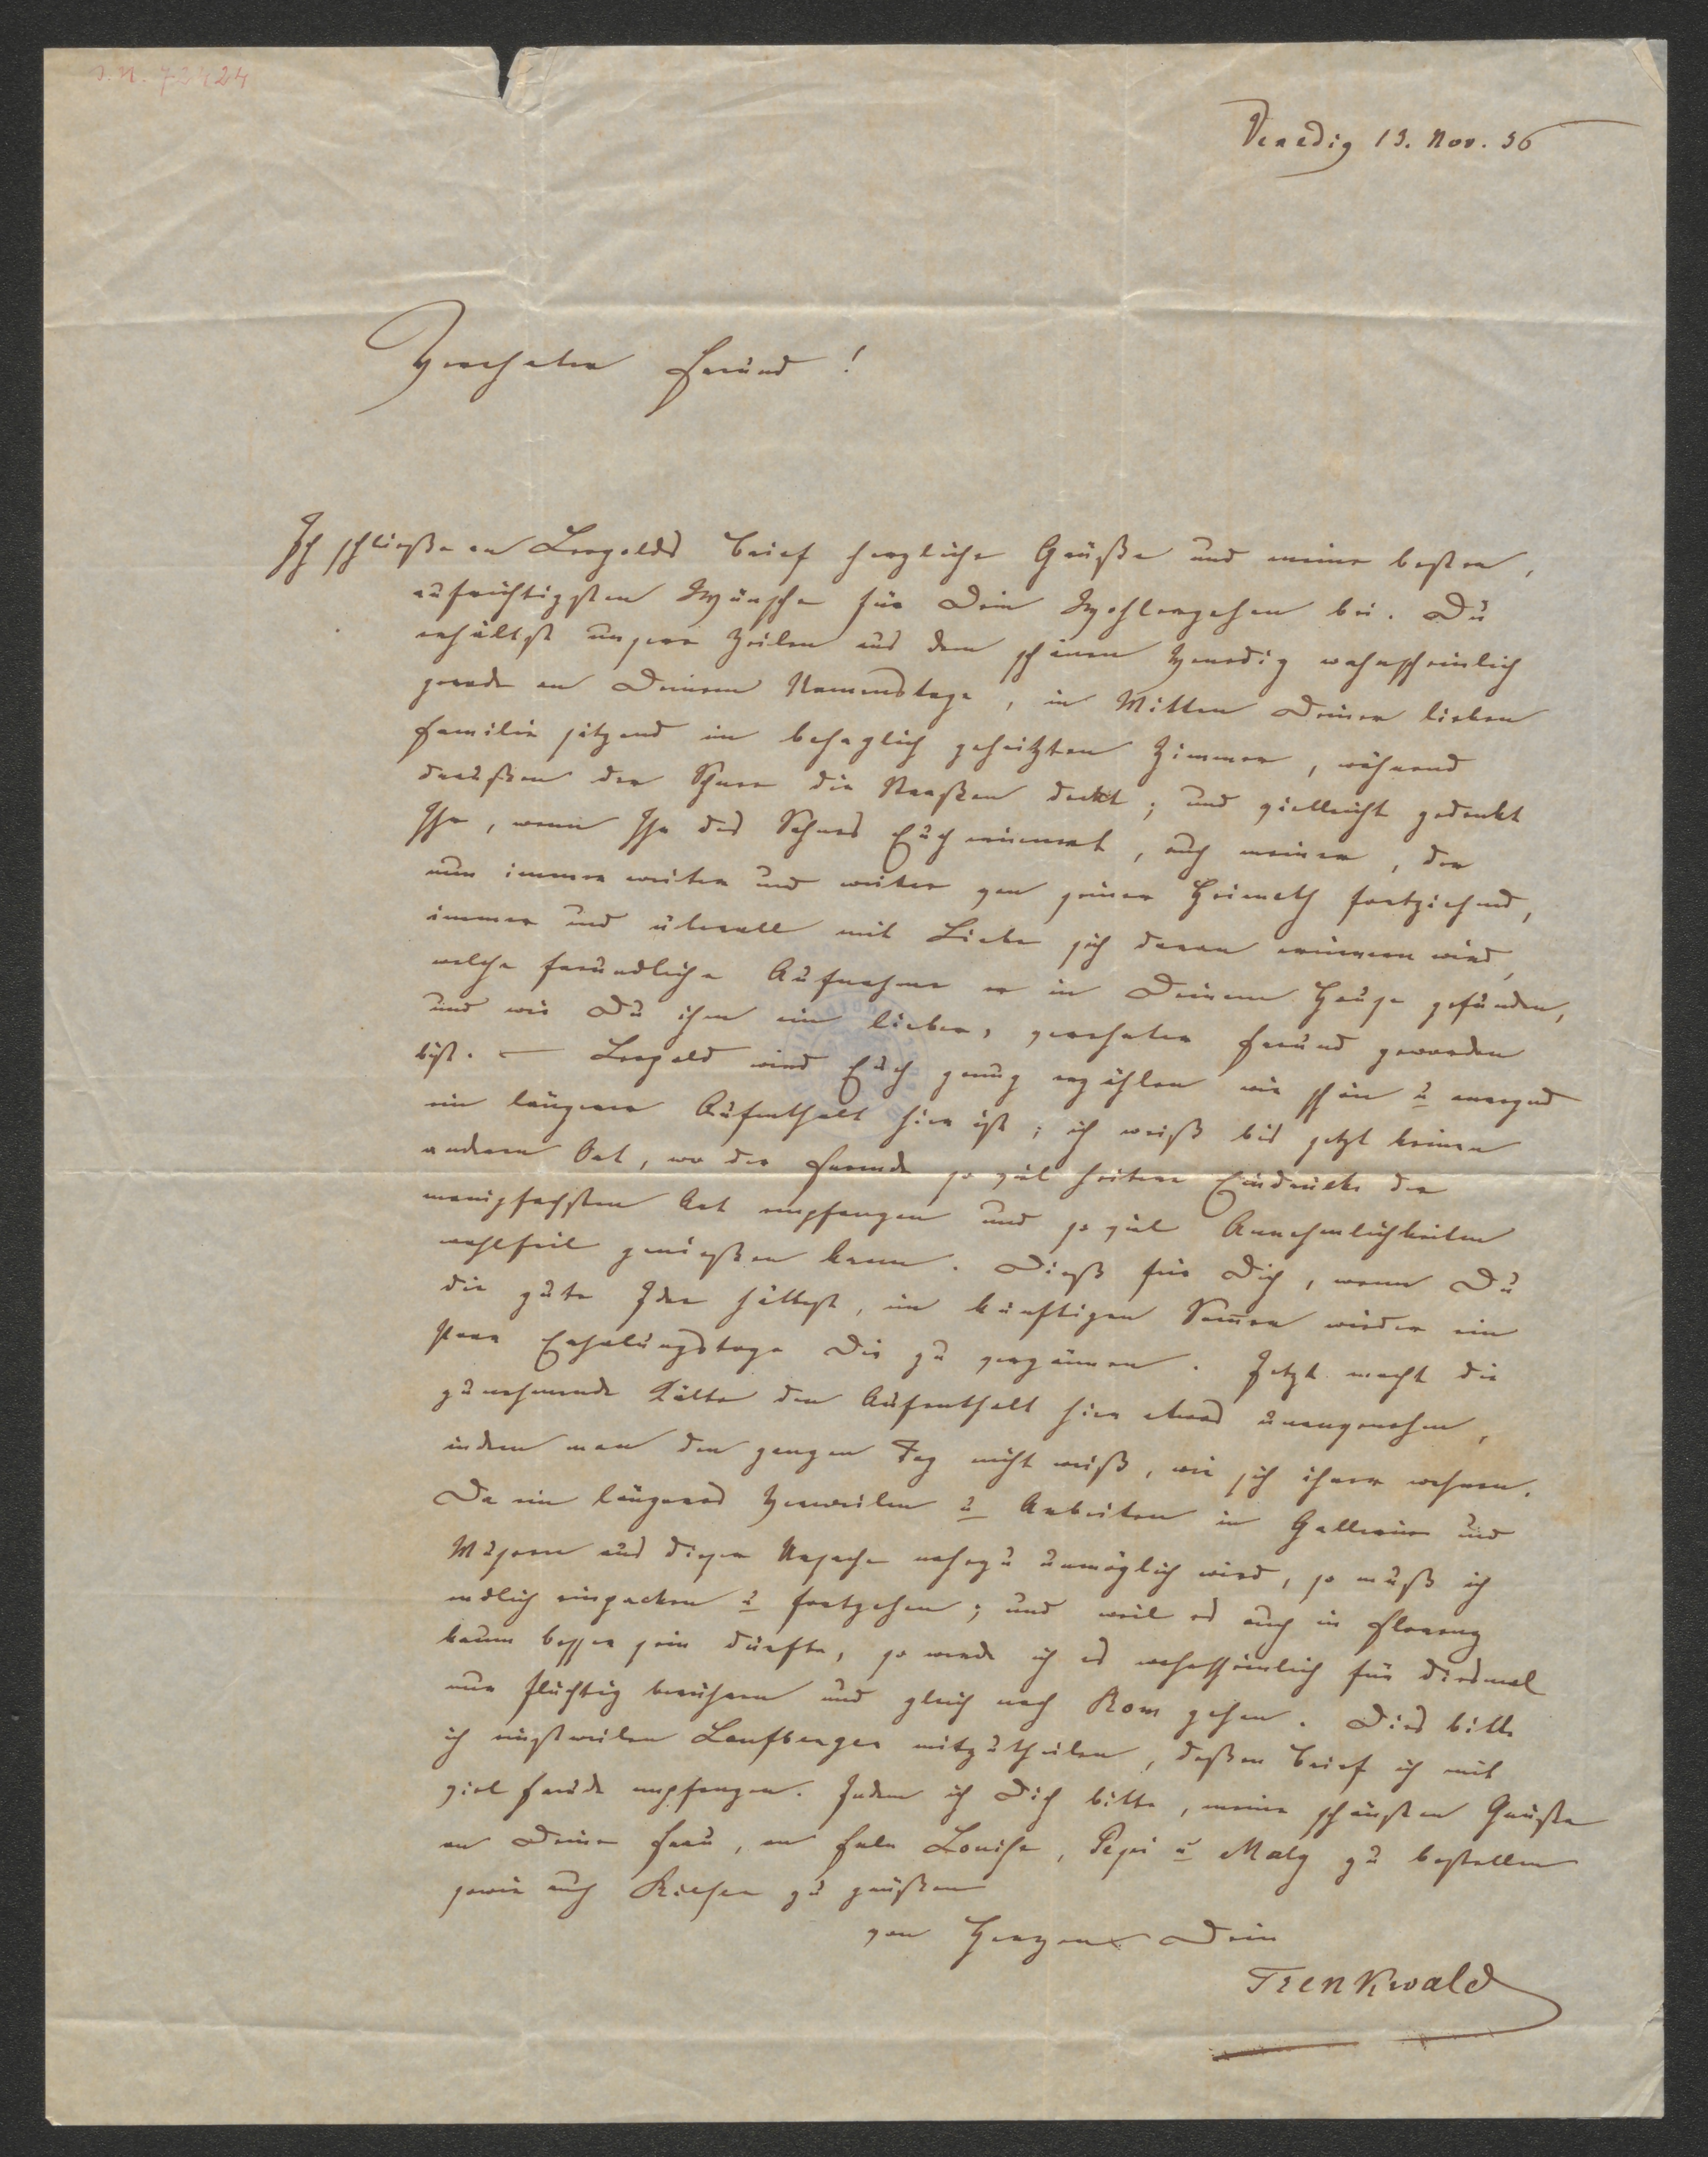 I.N. 73424
Venedig 13. Nov. 56
Verehrter Freund!
Ich schließe an Leopolds Brief herzliche Grüße und meine besten,
aufrichtigsten Wünsche für Dein Wohlergehen bei. Du
erhältst unsere Zeilen aus dem schönen Venedig wahrscheinlich
gerade an Deinem Namenstage, in Mitten Deiner lieben
Familie sitzend im behaglich geheitzten Zimmer, während
draußen der Schnee die Straßen deckt; und vielleicht gedenkt
Ihr, wenn Ihr des Sohnes Euch erinnert, auch meiner, der
nun immer weiter und weiter von seiner Heimath fortziehend,
immer und überall mit Liebe sich daran erinnern wird,
welche freundliche Aufnahme er in Deinem Hause gefunden,
und wie Du ihm ein lieber, verehrter Freund geworden
bist. — Leopold wird Euch genug erzählen wie schön u anregend
ein längerer Aufenthalt hier ist; ich weiß bis jetzt keinen
anderen Ort, wo der Fremde so viel heitere Eindrücke der
manigfachsten Art empfangen und so viel Annehmlichkeiten
wohlfeil genießen kann. Dieß für Dich, wenn Du
die gute Idee hättest, im künftigen Som̅er wieder ein
Paar Erholungstage Dir zu vergönnen. Jetzt macht die
zunehmende Kälte den Aufenthalt hier etwas unangenehm,
indem man den ganzen Tag nicht weiß, wie sich ihrer wehren.
Da ein längeres Verweilen u Arbeiten in Gallerien und
Museen aus dieser Ursache nahezu unmöglich wird, so muß ich
endlich einpacken u fortgehen; und weil es auch in Florenz
kaum besser sein dürfte, so werde ich es wahrscheinlich für diesmal
nur flüchtig berühren und gleich nach Rom gehen. Dies bitte
ich einstweilen Laufberger mitzutheilen, deßen Brief ich mit
viel Freude empfangen. Indem ich Dich bitte, meine schönsten Grüße
an Deine Frau, an Frln Louise, Pepi u Maly zu bestellen
sowie auch Rieser zu grüßen
von Herzen Dein
Trenkwald